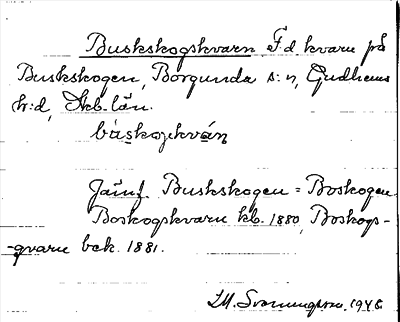 Buskskogskvarn F.d. kvarn på
Buskskogen, Borgunda s:n, Gudhems
h:d, Skb. län.
bàskojkván
Jämf. Buskskogen = Boskogen.
Boskogskvarn kb. 1880, Boskogs-
-qvarn bek. 1881.
1948.